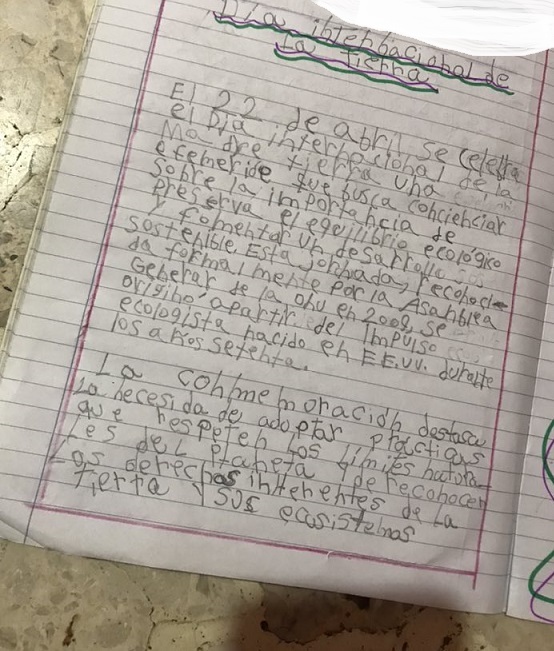 Día internacional de
La Tierra
El 22 de abril se celebra
el Día internacional de la
Madre tierra una
efemeride que busca conciënciar
sobre la importancia de
preserva el equilibrio ecológico
y fomentar un desarrollo
sostenible. Esta jornada, reconoci-
da formalmente por la Asanblea
Geberar de la onu en 2009, se
originó apartir del impulso
ecologista nacido en EE.UU. durante
los años setenta.
La conmemoración destaca
La necesidad de adoptar prácticas
que respeten Los Límites natura-
Les del planeta y de reconocer
Los derechos inherentes de La
Tierra y sus ecosistemas